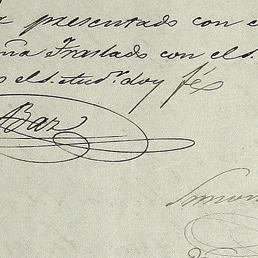 presentado con e
ña Traslado con el s.
s el s. Aud.r doy fé
Baz
Simon